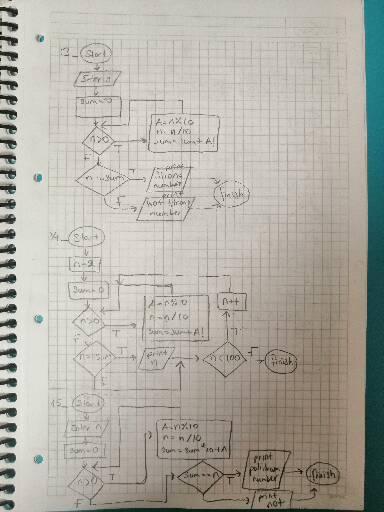 13_ Start
Enter n
Sum=0
n>0
T
F
A=n%10
n=n/10
sum=sum+A!
n==sum
T
F
print
Strong
number
print
not strong
number
finish
14_ Start
n=2
Sum=0
n>0
T
F
A=n%10
n=n/10
Sum=sum+A!
n==sum
T
F
print
n
n<100
T
F
n++
finish
15_ Start
Enter n
Sum=0
n>0
T
F
A=n%10
n=n/10
Sum=sum*10+A
Sum==n
T
F
print
palidrum
number
print
not
finish